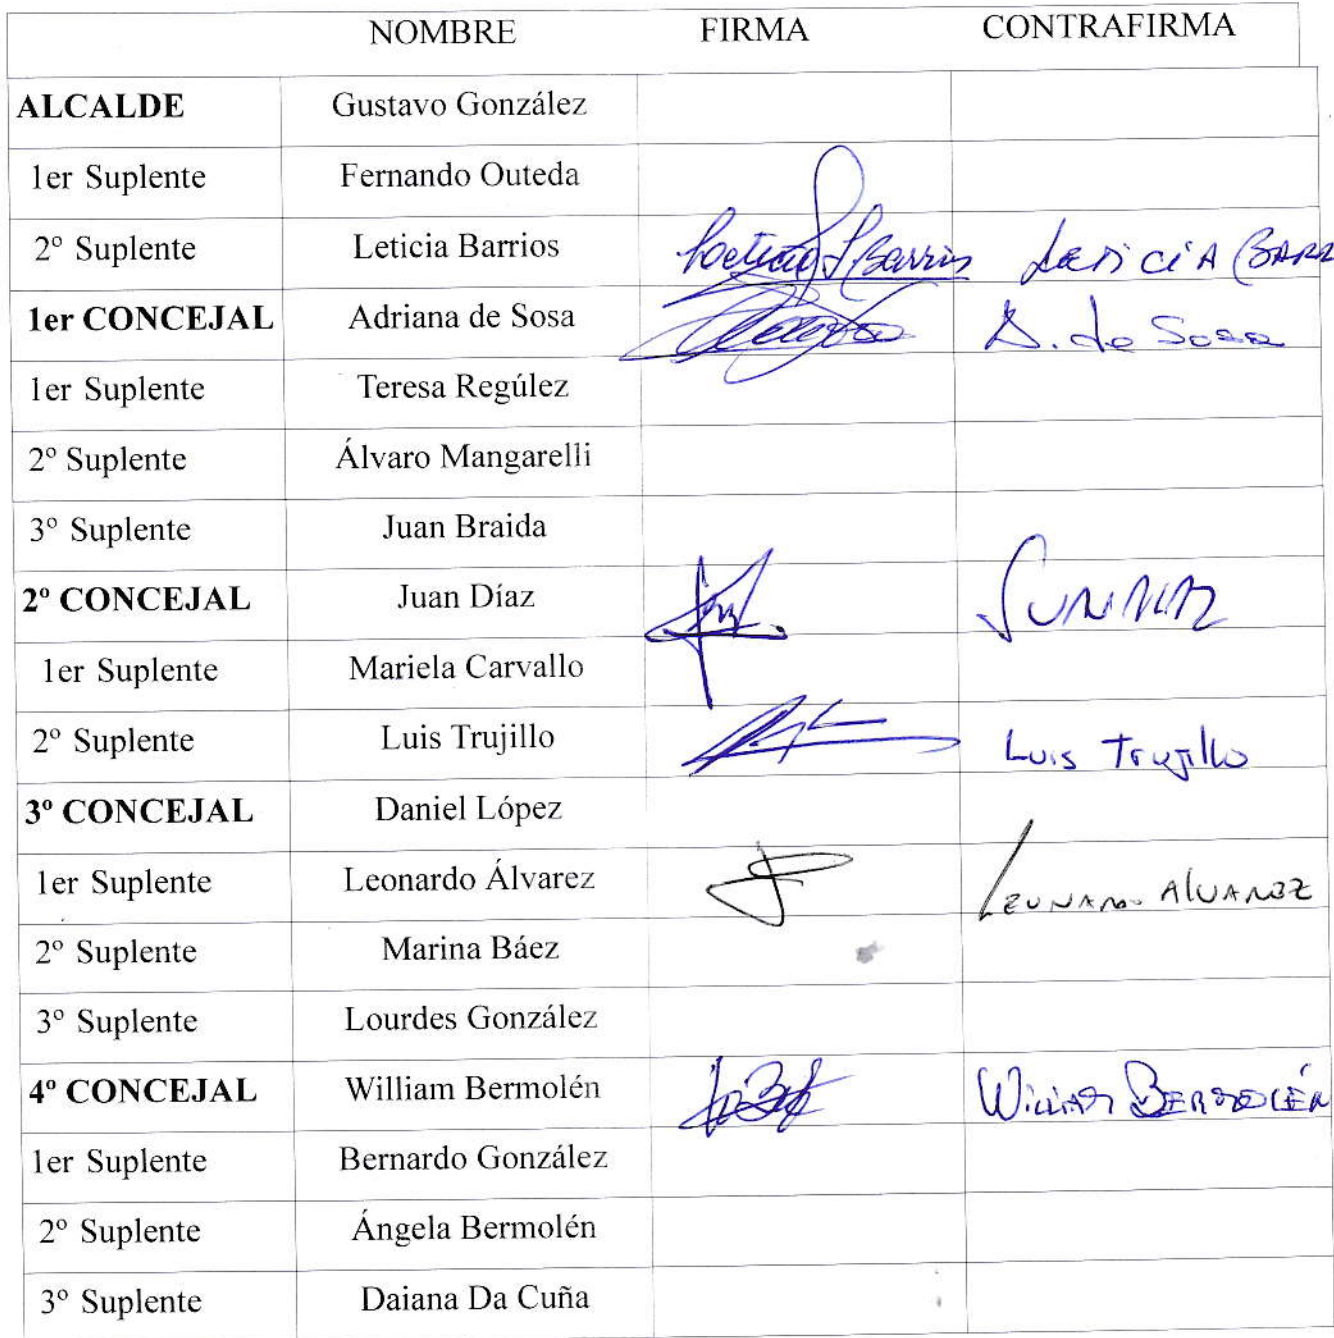 NOMBRE FIRMA CONTRAFIRMA
ALCALDE Gustavo González
1er Suplente Fernando Outeda
2º Suplente Leticia Barrios Leticia Barrios LETICIA BARR
1er CONCEJAL Adriana de Sosa A. de Sosa
1er Suplente Teresa Regúlez
2º Suplente Álvaro Mangarelli
3º Suplente Juan Braida
2º CONCEJAL Juan Díaz
1er Suplente Mariela Carvallo
2º Suplente Luis Trujillo Luis Trujillo
3º CONCEJAL Daniel López
1er Suplente Leonardo Álvarez LEONARDO ALVAREZ
2º Suplente Marina Báez
3º Suplente Lourdes González
4º CONCEJAL William Bermolén WILLIAM BERMOLÉN
1er Suplente Bernardo González
2º Suplente Ángela Bermolén
3º Suplente Daiana Da Cuña